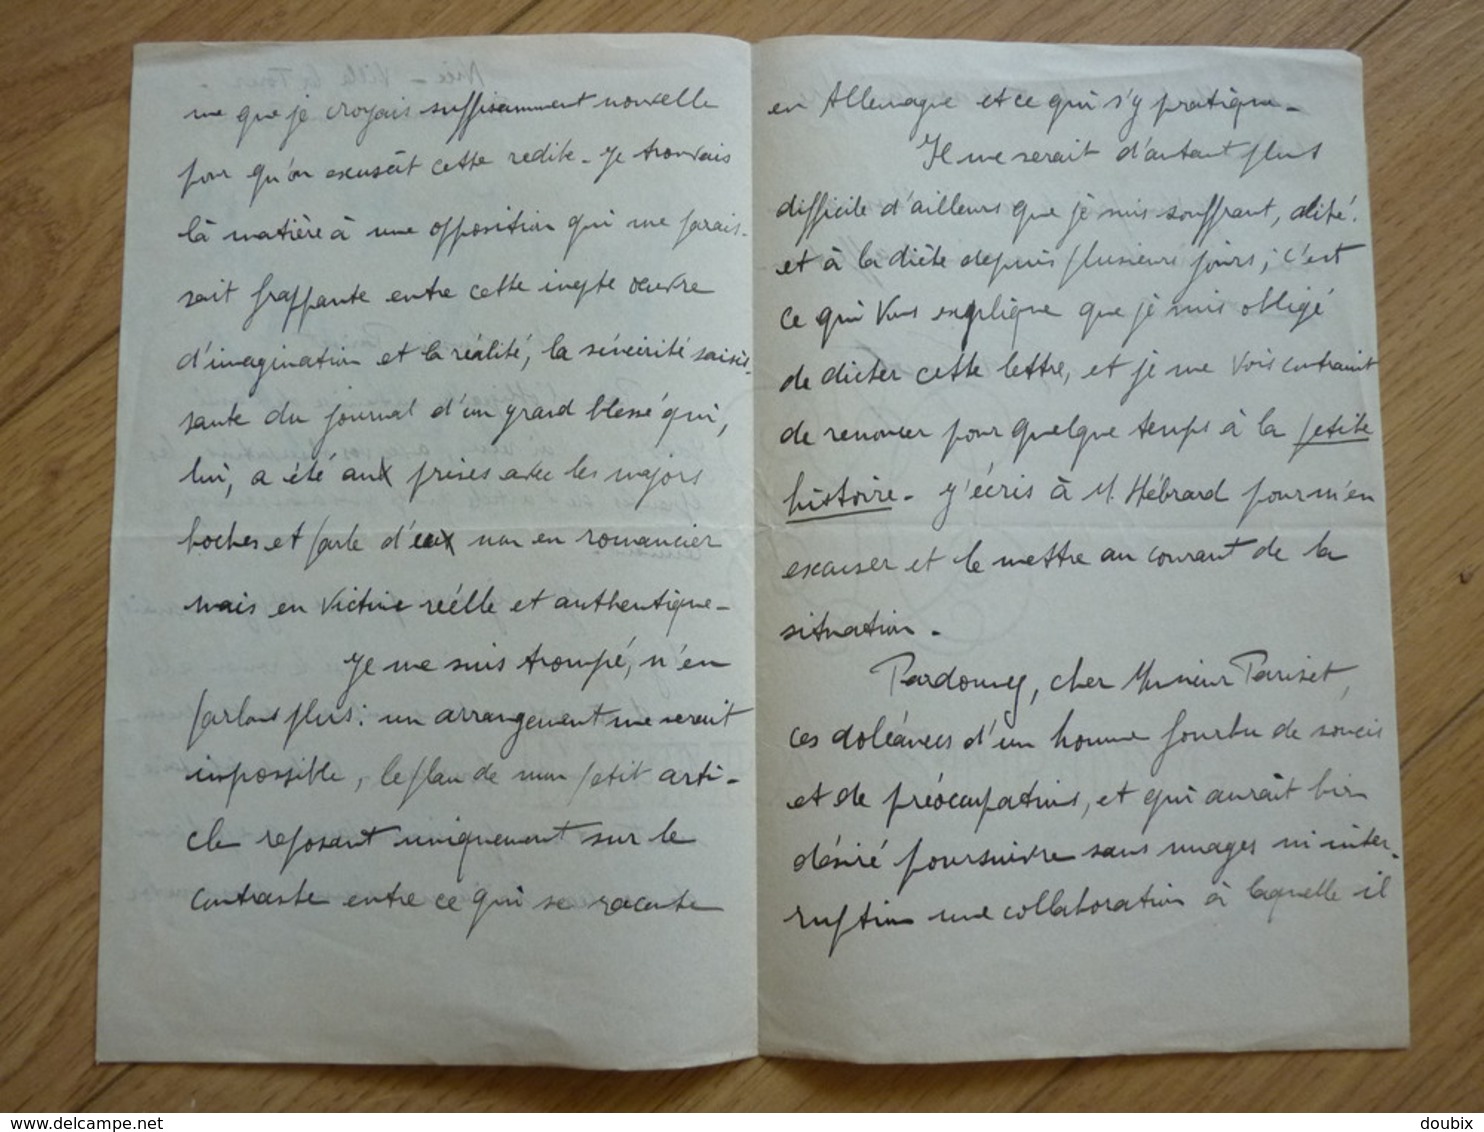 me que je croyais suffisamment nouvelle
pour qu'on excusât cette redite - Je trouvais
là matière à une opposition qui me parais-
sait frappante entre cette inepte œuvre
d'imagination et la réalité, la sincérité saisis-
sante du journal d'un grand blessé qui,
lui, a été aux prises avec les majors
boches et parle d'eux non en romancier
mais en victime réelle et authentique -
Je me suis trompé, n'en
parlons plus : un arrangement me serait
impossible, le plan de mon petit arti-
cle reposant uniquement sur le
contraste entre ce qui se raconte
en Allemagne et ce qui s'y pratique -
Il me serait d'autant plus
difficile d'ailleurs que je suis souffrant, alité.
et à la diète depuis plusieurs jours ; c'est
ce qui vous explique que je suis obligé
de dicter cette lettre, et je me vois contraint
de renoncer pour quelque temps à la petite
histoire - J'écris à M. Hébrard pour m'en
excuser et le mettre au courant de la
situation -
Pardonnez, cher Monsieur Pariset,
ces doléances d'un homme fourbu de soucis
et de préoccupations, et qui aurait bien
désiré poursuivre sans nuages ni inter-
ruption une collaboration à laquelle il
Nice - Villa La Tour -
doubix